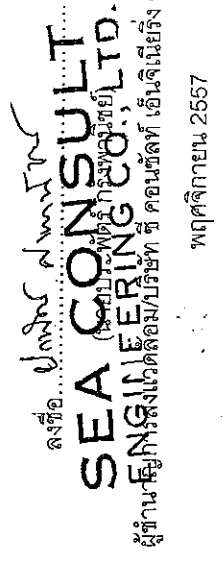 ลงชื่อ
SEA CONSULT
ENGINEERING CO., LTD.
ผู้ชำนาญการสิ่งแวดล้อม/บริษัท ซี คอนซัลท์ เอ็นจิเนียริ่ง
พฤศจิกายน 2557